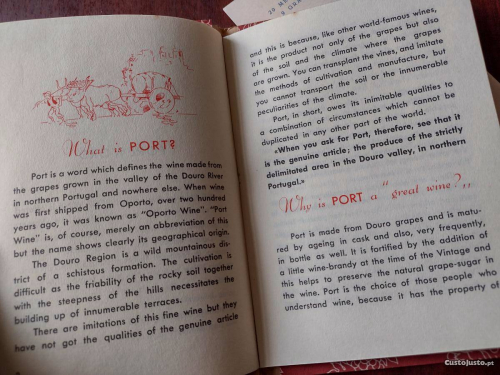 What is PORT?
Port is a word which defines the wine made from
the grapes grown in the valley of the Douro River
in northern Portugal and nowhere else. When wine
was first shipped from Oporto, over two hundred
years ago, it was known as "Oporto Wine". "Port
Wine" is, of course, merely an abbreviation of this
but the name shows clearly its geographical origin.
The Douro Region is a wild mountainous dis-
trict of a schistous formation. The cultivation is
difficult as the friability of the rocky soil together
with the steepness of the hills necessitates the
building up of innumerable terraces.
There are imitations of this fine wine but they
have not got the qualities of the genuine article
and this is because, like other world-famous wines,
it is the product not only of the grapes but also
of the soil and the climate where the grapes
are grown. You can transplant the vines, and imitate
the methods of cultivation and manufacture, but
you cannot transport the soil or the innumerable
peculiarities of the climate.
Port, in short, owes its inimitable qualities to
a combination of circumstances which cannot be
duplicated in any other part of the world.
«When you ask for Port, therefore, see that it
is the genuine article; the produce of the strictly
delimitated area in the Douro valley, in northern
Portugal.»
Why is PORT a "great wine?"
Port is made from Douro grapes and is matu-
red by ageing in cask and also, very frequently,
in bottle as well. It is fortified by the addition of
a little wine-brandy at the time of the Vintage and
this helps to preserve the natural grape-sugar in
the wine. Port is the choice of those people who
understand wine, because it has the property of
CustoJusto.pt